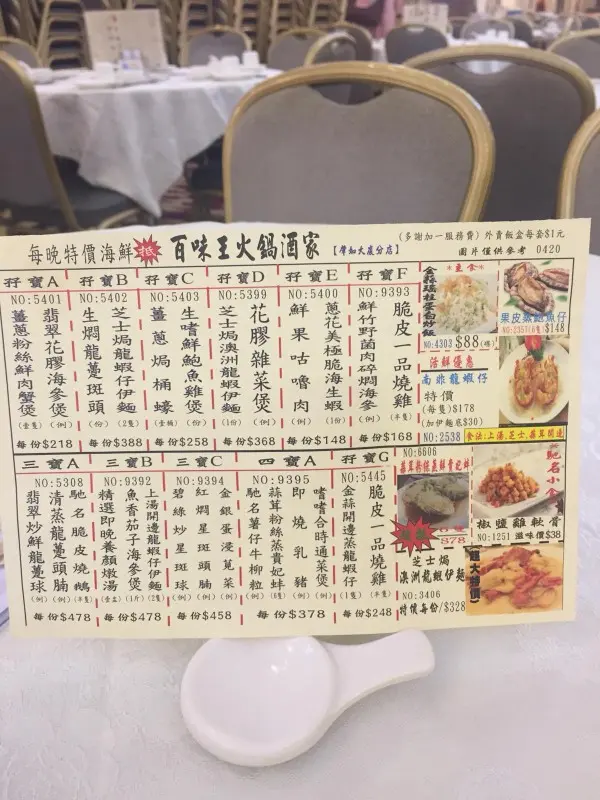 每晚特價海鮮 百味王火鍋酒家
(多謝加一服務費) 外賣飯盒每套$1元
圖片僅供參考 0420
孖寶A
NO:5401
翡翠花膠海參煲(例)
薑蔥粉絲鮮肉蟹煲(壹隻)
每份$218
孖寶B
NO:5402
芝士焗龍蝦仔伊麵
生燜龍躉斑頭
每份$388
孖寶C
NO:5403
生啫鮮鮑魚雞煲(例)
薑蔥焗桶蠔
每份$258
孖寶D
NO:5399
花膠雜菜煲(例)
芝士焗澳洲龍蝦伊麵(1份)
每份$368
孖寶E
NO:5400
蔥花美極脆海生蝦(例)
鮮果咕嚕肉(1份)
每份$148
孖寶F
NO:9393
脆皮一品燒雞(半隻)
鮮竹野菌肉碎燜海參(例)
每份$168
三寶A
NO:5308
馳名脆皮燒鵝(半隻)
清蒸龍躉頭腩(例)
翡翠炒鮮龍躉球(例)
每份$478
三寶B
NO:9392
上湯開邊龍蝦仔伊麵(2隻)
魚香茄子海參煲
精選即晚養顏燉湯
每份$478
三寶C
NO:9394
金銀蛋浸莧菜(例)
紅燜星斑頭腩(例)
碧綠炒星斑球(例)
每份$458
四寶A
NO:9395
啫啫合時通菜煲(例)
即燒乳豬(例)
蒜茸粉絲蒸貴妃蚌
馳名薯仔牛柳粒(例)
每份$378
孖寶G
NO:5445
脆皮一品燒雞(半隻)
金蒜開邊蒸龍蝦仔(1隻)
每份$248
*主食*
金蒜瑤柱蛋白炒飯
NO:4303 $88(碟)
果皮蒸鮑魚仔
$148
活鮮優惠
南非龍蝦仔
特價
(每隻)$178
(加伊麵底$30)
NO:2538
食法:上湯,芝士,蒜茸開邊
NO:6606
蒜茸粉絲蒸鮮貴妃蚌
$78
馳名小食
椒鹽雞軟骨
NO:1251 滋味價$38
芝士焗
澳洲龍蝦伊麵
NO:3406
特價每份/$328
龍大特價